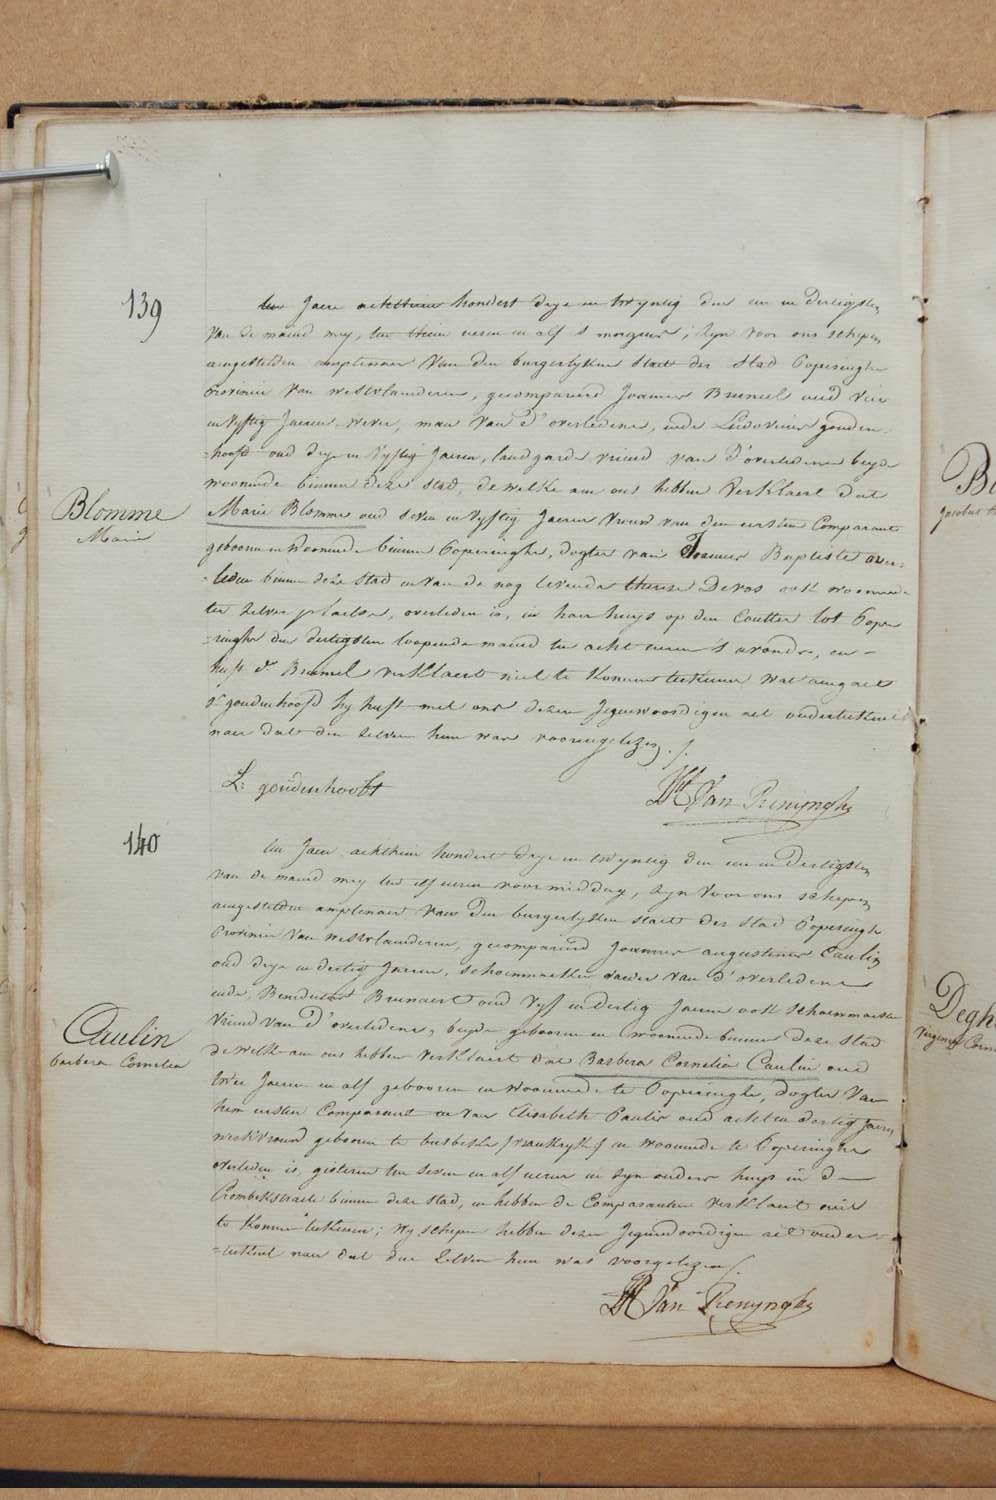 139
Blomme
Marie
ten Jaere achtthien hondert drye en twyntig den een en dertigsten
van de maend mey, ten thien ueren en alf s morgens, zyn voor ons schepen
aengestelden amptenaer van den burgerlyken staet der stad Poperinghe
Provincie van westvlaenderen, gecompareerd Joannes Brunel oud vier
en vyftig Jaeren wever, man van d'overledene, ende Ludovicus gouden-
-hooft oud drye en vyftig Jaeren, landgarde vriend van d'overledene beyde
woonende binnen deze stad, dewelke aen ons hebben verklaert dat
Marie Blomme oud seven en vyftig Jaeren vrouw van den eersten Comparant
geboren en woonende binnen Poperinghe, dogter van Joannes Baptiste over-
-leden binnen deze stad en van de nog levende therese Devos ook woonende
ter zelver plaetse, overleden is, in haer huys op den Coutter tot Pope-
-ringhe den dertigsten loopende maend ten acht ueren 's avonds, en
heeft dn Brunel verklaert niet te konnen teekenen wat aengaet
d'goudenhoofd hy heeft met ons dezen Jegenwoordigen act onderteekent
naer dat den zelven hun was voorengelezen ./.
L: goudenhooft
Van Renynghe
140
Caulin
barbera Cornelia
ten Jaere achthien hondert drye en twyntig den een en dertigsten
van de maend mey ten elf ueren voormiddag, zyn voor ons schepen
aengestelden amptenaer van den burgerlyken staet der stad Poperinghe
Provincie van westvlaenderen, gecompareerd Joannes augustinus Caulin
oud drye en dertig Jaeren, schoenmaeker vader van d'overledene
ende Benedictus Brunaert oud vyf en dertig Jaeren ook schoenmaeker
vriend van d'overledene, beyde geboren en woonende binnen deze stad
dewelke aen ons hebben verklaert dat Barbera Cornelia Caulin oud
twee Jaeren en alf gebooren en woonende te Poperinghe, dogter van
hem eersten Comparant en van Elisabeth Paulis oud acht en dertig Jaeren
werkvrouw geboren te busbeke (vrankryk) en woonende te Poperinghe
overleden is, gisteren ten seven en alf ueren in zyn ouders huys in d
Crombekstraete binnen deze stad, en hebben de Comparanten verklaert niet
te konnen teekenen; wy schepen hebben dezen Jegenwoordigen act onder-
-teekent naer dat den zelven hun was voorgelezen ./.
Van Renynghe
Jacobus
Degh